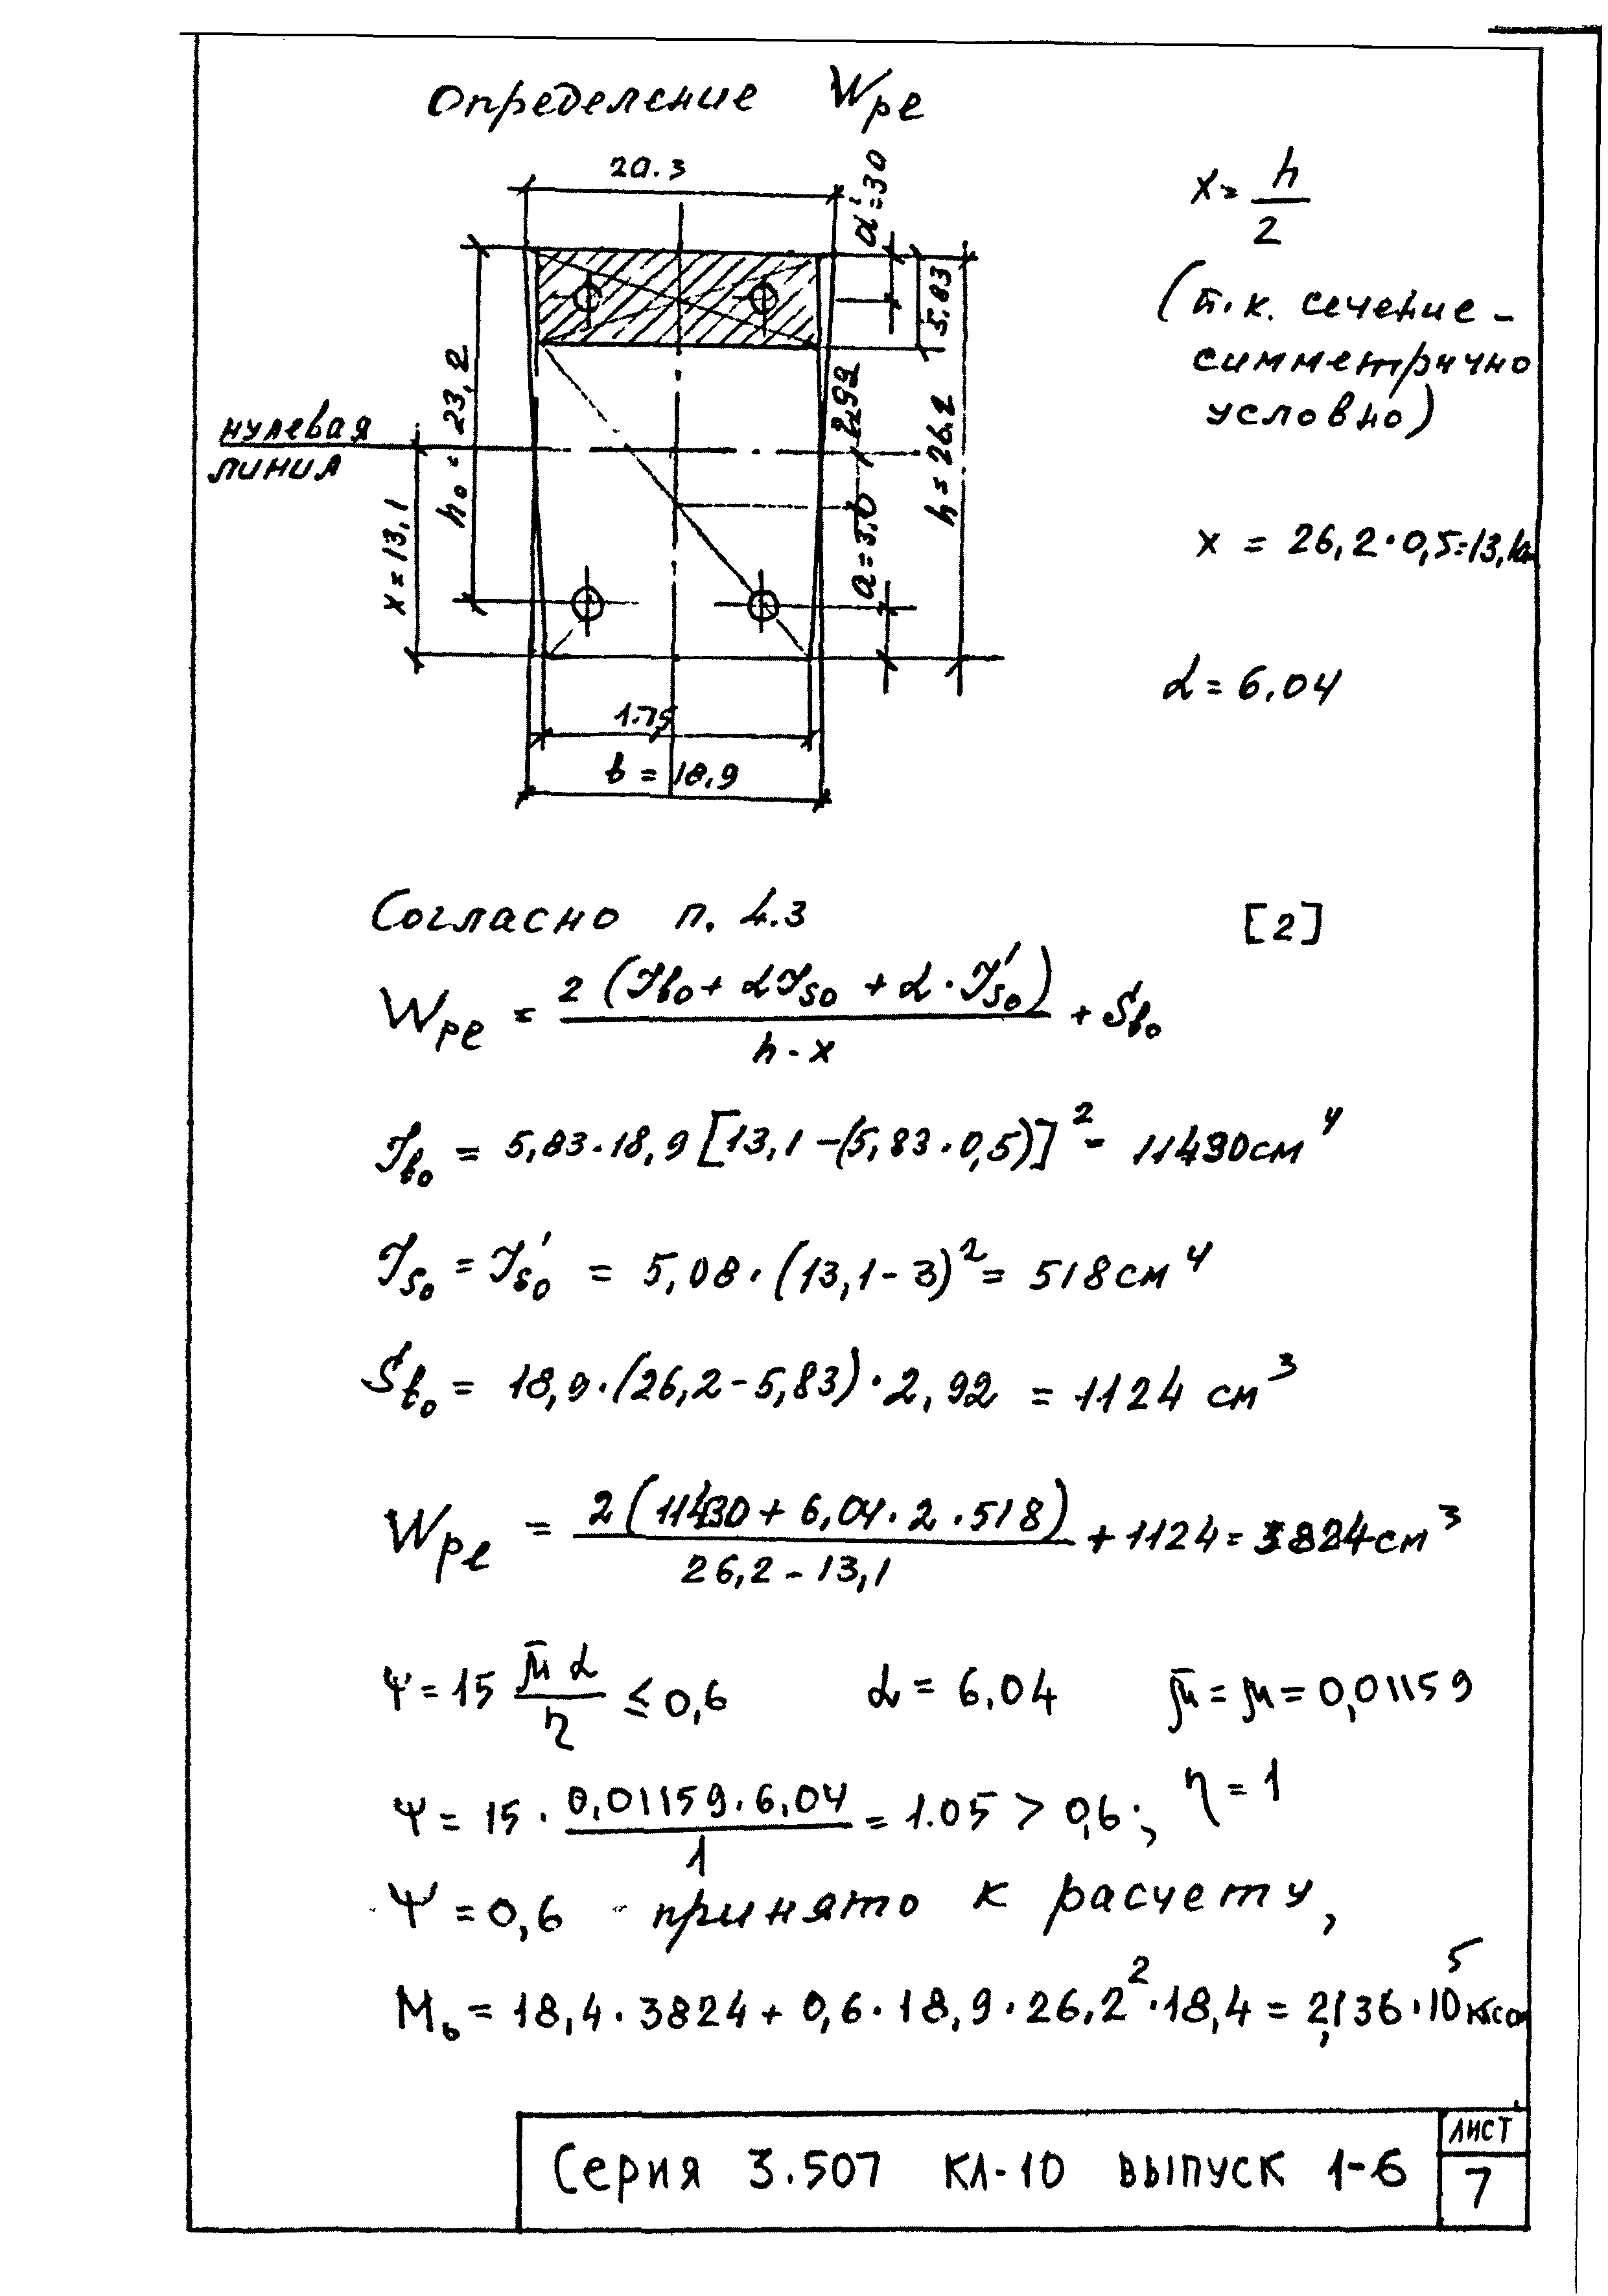 Определение Wpe
20.3
a'=30
5.83
h₀ = 23,2
2,92
h = 26.2
нулевая
линия
x = 13,1
a = 3.0
1.75
b = 18,9
x = h/2
(т.к. сечение -
симметрично
условно)
x = 26,2·0,5=13,1
α = 6,04
Согласно п. 4.3 [2]
Wpe = 2 (Jb₀ + αJs₀ + α·J's₀) / h - x + Sb₀
Jb₀ = 5,83·18,9 [13,1 -(5,83·0,5)]² = 11430см⁴
Js₀ = J's₀ = 5,08·(13,1-3)² = 518см⁴
Sb₀ = 18,9·(26,2-5,83)·2,92 = 1124 см³
Wpe = 2 (11430 + 6,04·2·518) / 26,2 - 13,1 + 1124 = 3824см³
Ψ = 15 μ̄ α / η ≤ 0,6 α = 6,04 μ̄ = μ = 0,01159
Ψ = 15 · 0,01159·6,04 / 1 = 1.05 > 0,6; η = 1
Ψ = 0,6 - принято к расчету,
Mb = 18,4·3824 + 0,6·18,9·26,2²·18,4 = 2,136·10⁵ кгсм
Серия 3.507 КЛ-10 выпуск 1-6
лист
7